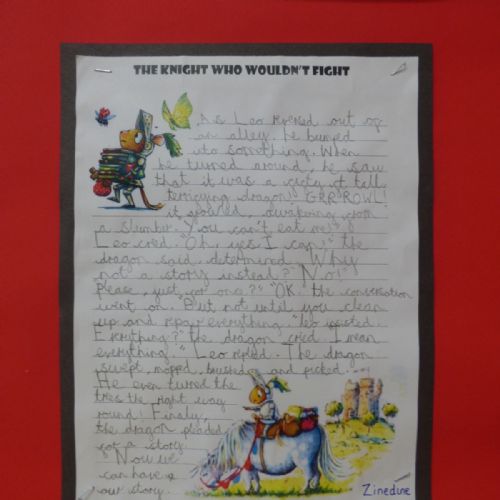 THE KNIGHT WHO WOULDN'T FIGHT
As Leo out of
an alley. he bumped
into something. When
he turned around, he saw
that it was a tall,
terrifying dragon!! GRRROWL!
it growled, awakening from
a slumber. "You can't eat me!"
Leo cried. "Oh, yes I can!" the
dragon said determined. "Why
not a story instead?" "No!"
"Please, just one?" "OK." the conversation
went on. "But not until you clean
up and repair everything." leo insisted.
"Everything?" the dragon cried. "I mean
everything!" Leo replied. The dragon
swept, mopped, brushed and picked...
He even turned the
trees the right way
round! Finally,
the dragon pleaded
for a story.
"Now we
can have a
our story.
Zinedine